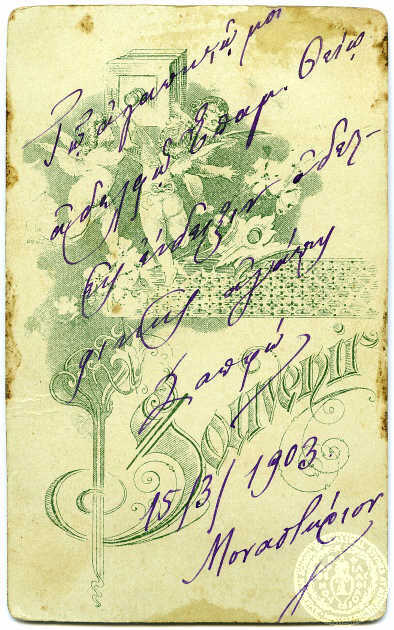 Τῷ ἀγαπητῷ μοι
ἀδελφῷ Ἐπαμ. Θείῳ
εἰς ἔνδειξιν ἀδελ-
φικῆς ἀγάπης
Σαπφώ
Souvenir
15/3/1903
Μοναστήριον